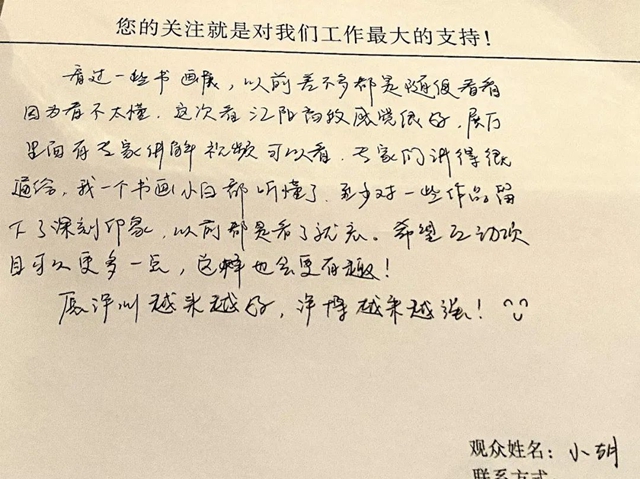 您的关注就是对我们工作最大的支持！
看过一些书画展，以前差不多都是随便看看
因为看不太懂．这次看江阴的感觉很好．展厅
里面有专家讲解视频可以看．专家们讲得很
通俗，我一个书画小白都听懂了．至少对一些作品留
下了深刻印象，以前都是看了就忘。希望互动项
目可以更多一点，这样也会更有趣！
愿深圳越来越好，深博越来越强！
观众姓名：小胡
联系方式